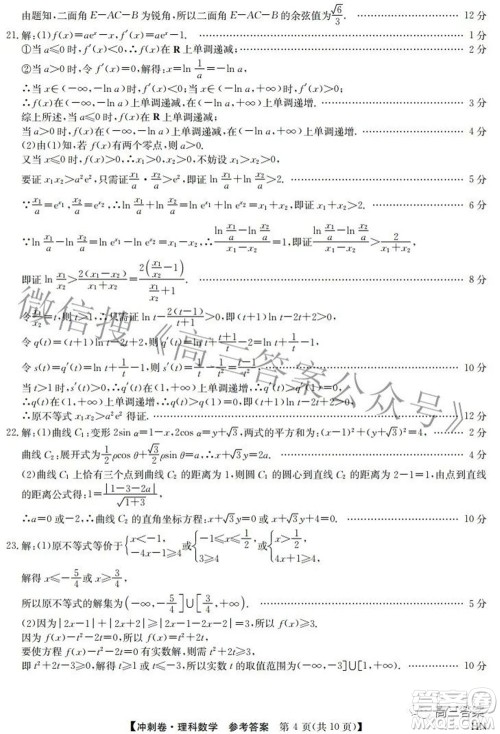 由题知,二面角E-AC-B为锐角,所以二面角E-AC-B的余弦值为√6/3. 12分
21.解:(1)f(x)=ae^x-x,f′(x)=ae^x-1. 1分
①当a≤0时,f′(x)<0,∴f(x)在R上单调递减; 2分
②当a>0时,令f′(x)=0,解得:x=ln 1/a=-ln a,
∴当x∈(-∞,-ln a)时,f′(x)<0;当x∈(-ln a,+∞)时,f′(x)>0;
∴f(x)在(-∞,-ln a)上单调递减,在(-ln a,+∞)上单调递增. 3分
综上所述,当a≤0时,f(x)在R上单调递减;
当a>0时,f(x)在(-∞,-ln a)上单调递减,在(-ln a,+∞)上单调递增. 4分
(2)由(1)知,若f(x)有两个零点,则a>0.
又当x≤0时,f(x)>0,∴x₁>0,x₂>0,不妨设x₁>x₂>0,
要证x₁x₂>a²e²,只需证x₁/a·x₂/a>e²,即证ln x₁/a+ln x₂/a>2. 5分
∵x₁/a=e^x₁,x₂/a=e^x₂,∴ln x₁/a+ln x₂/a=ln e^x₁+ln e^x₂=x₁+x₂, 6分
∵ln x₁/a-ln x₂/a=ln e^x₁-ln e^x₂=x₁-x₂,∴(ln x₁/a+ln x₂/a)/(x₁+x₂)=(ln x₁/a-ln x₂/a)/(x₁-x₂),即证(ln x₁/a-ln x₂/a)/(x₁-x₂)>2/(x₁+x₂),
即证ln x₁/x₂>2(x₁-x₂)/(x₁+x₂)=2(x₁/x₂-1)/(x₁/x₂+1). 8分
令x₁/x₂=t,则t>1,∴只需证ln t-2(t-1)/(t+1)>0,即(t+1)ln t-2t+2>0.
令q(t)=(t+1)ln t-2t+2,则q′(t)=ln t+(t+1)/t-2=ln t+1/t-1.
令s(t)=q′(t)=ln t+1/t-1,则s′(t)=1/t-1/t²=(t-1)/t². 10分
当t>1时,s′(t)>0,∴q′(t)在(1,+∞)上单调递增,∴q′(t)>q′(1)=0,
∴q(t)在(1,+∞)上单调递增,∴q(t)>q(1)=0,即(t+1)ln t-2t+2>0;
∴原不等式x₁x₂>a²e²得证. 12分
22.解:(1)曲线C₁:变形2sin α=1-x,2cos α=y+√3,两式的平方和为:(x-1)²+(y+√3)²=4. 2分
曲线C₂:展开式为1/2ρcos θ+√3/2ρsin θ=a,∴x+√3y=2a. 4分
(2)曲线C₁上恰有三个点到曲线C₂的距离为1,则圆C₁的圆心到直线C₂的距离为2-1=1,由点到直线的距离公式得:1=|1-3-2a|/√(1+3),
∴a=0或-2,∴曲线C₂的直角坐标方程:x+√3y=0或x+√3y+4=0. 10分
23.解:(1)原不等式等价于{x<-1, -4x-1≥4 或{-1≤x≤1/2, 3≥4 或{x>1/2, 4x+1≥4.
解得x≤-5/4或x≥3/4,
所以原不等式的解集为(-∞,-5/4]∪[3/4,+∞). 5分
(2)因为|2x-1|+|2x+2|≥|2x-1-2x-2|=3,∴f(x)≥3.
因为f(x)-t²-2t=0,所以f(x)=t²+2t,
要使方程f(x)-t²-2t=0有实数解,则需t²+2t≥3,
即t²+2t-3≥0,解得t≥1或t≤-3,所以实数t的取值范围为(-∞,-3]∪[1,+∞). 10分
微信搜《高三答案公众号》
【冲刺卷·理科数学 参考答案 第4页(共10页)】
高三答案